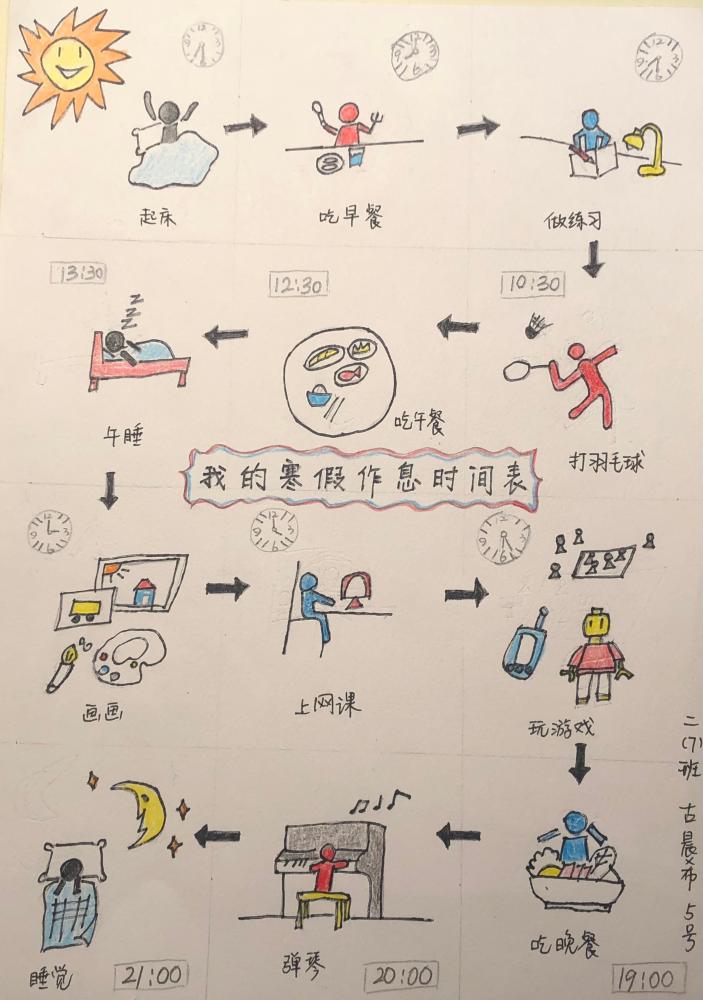 起床
吃早餐
做练习
10:30
打羽毛球
12:30
吃午餐
13:30
午睡
我的寒假作息时间表
画画
上网课
玩游戏
吃晚餐
19:00
弹琴
20:00
睡觉
21:00
二(7)班 古晨希 5号